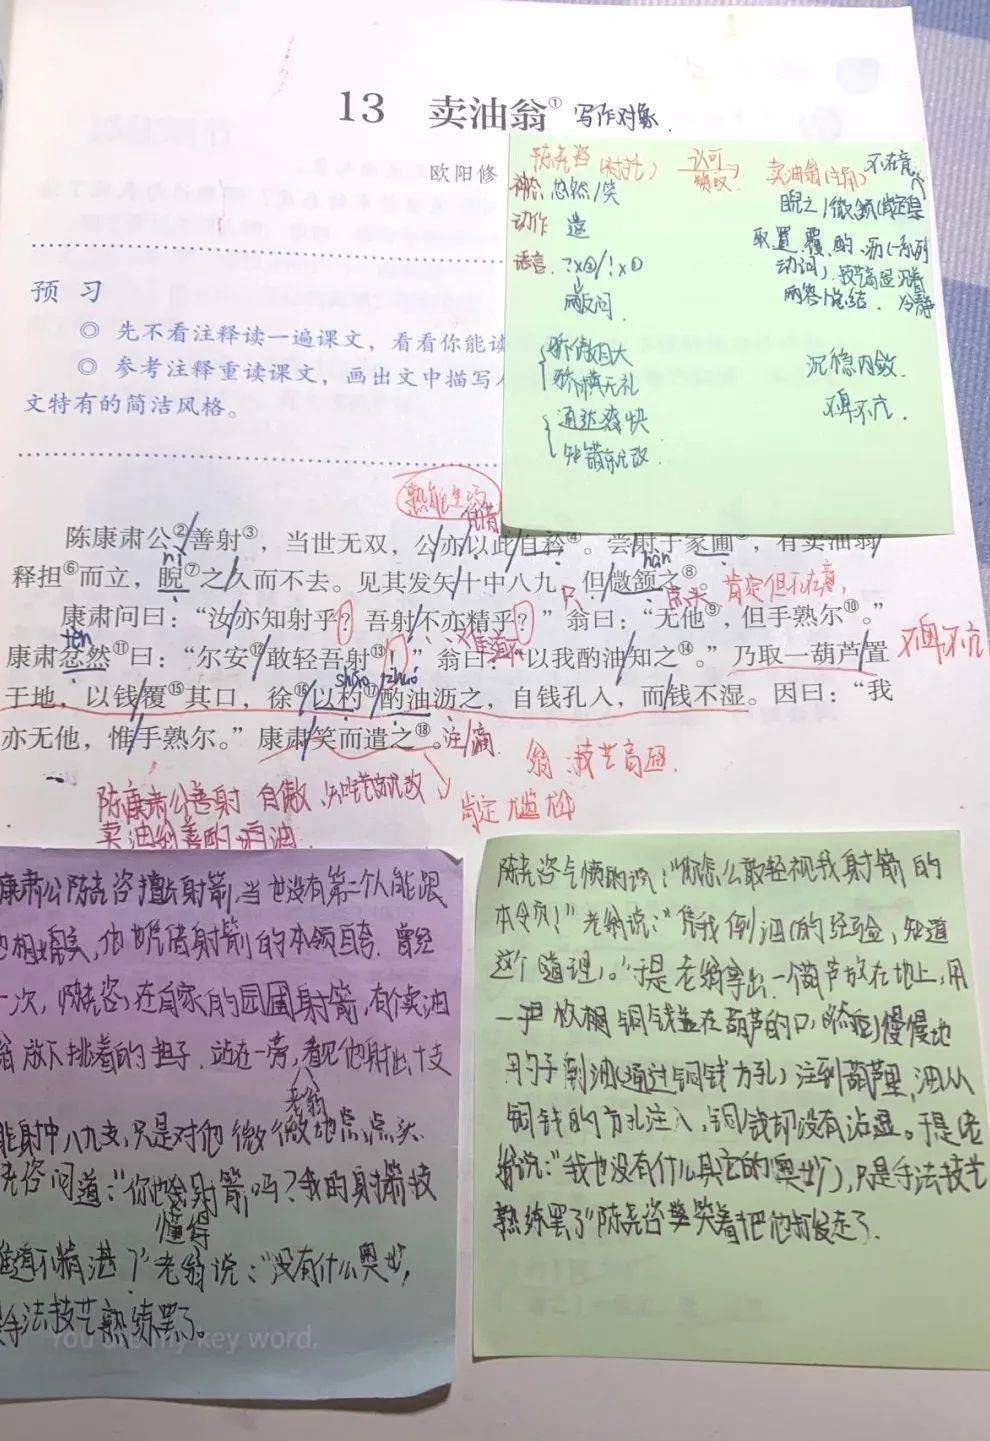 13 卖油翁① 写作对象
欧阳修
陈尧咨(衬托) 认可 卖油翁(主角) 不在意
神态 忿然/笑 睨之/微颔
动作 遣 取 置 覆 酌 沥(一系列
动词)
语言 两答
反问 冷静
骄傲自大
骄横无礼 沉稳内敛
通达爽快 不卑不亢
知错就改
预 习
◎ 先不看注释读一遍课文，看看你能读
◎ 参考注释重读课文，画出文中描写人
文特有的简洁风格。
熟能生巧
陈康肃公②善射③，当世无双，公亦以此自矜④。尝射于家圃⑤，有卖油翁
nì hàn
释担⑥而立，睨⑦之久而不去。见其发矢十中八九，但微颔之⑧。
只 点头 肯定但不在意
康肃问曰：“汝亦知射乎？吾射不亦精乎？”翁曰：“无他⑨，但手熟尔⑩。”
康肃忿然⑪曰：“尔安⑫敢轻吾射⑬！”翁曰：“以我酌油知之⑭。”乃取一葫芦置 不卑不亢
sháo zhuó
于地，以钱覆⑮其口，徐⑯以杓⑰酌油沥之，自钱孔入，而钱不湿。因曰：“我
亦无他，惟手熟尔。”康肃笑而遣之⑱。注/滴
翁 技艺高超
陈康肃公善射 自傲 知错就改 肯定 尴尬
卖油翁善酌油
康肃公陈尧咨擅长射箭，当世没有第二个人能跟
也相媲美，他也凭借射箭的本领自夸。曾经
一次，(陈尧咨)在自家的园圃射箭，有个卖油
翁放下挑着的担子，站在一旁，看见他射出十支
老翁
能射中八九支，只是对他微微地点点头
尧咨问道：“你也会射箭吗？我的射箭技
懂得
难道不精湛？”老翁说：“没有什么奥妙，
手法技艺熟练罢了。
You are my key word.
陈尧咨气愤的说：“你怎么敢轻视我射箭的
本领！”老翁说：“凭我倒油(的经验，知道
这个道理)。”于是老翁拿出一个葫芦放在地上，用
一枚铜钱盖在葫芦的口，慢慢地
用勺子倒油(通过铜钱方孔)注到葫芦里，油从
铜钱的方孔注入，铜钱却没有沾湿。于是老
翁说：“我也没有什么其它的(奥妙)，只是手法技艺
熟练罢了”陈尧咨笑着把他打发走了.